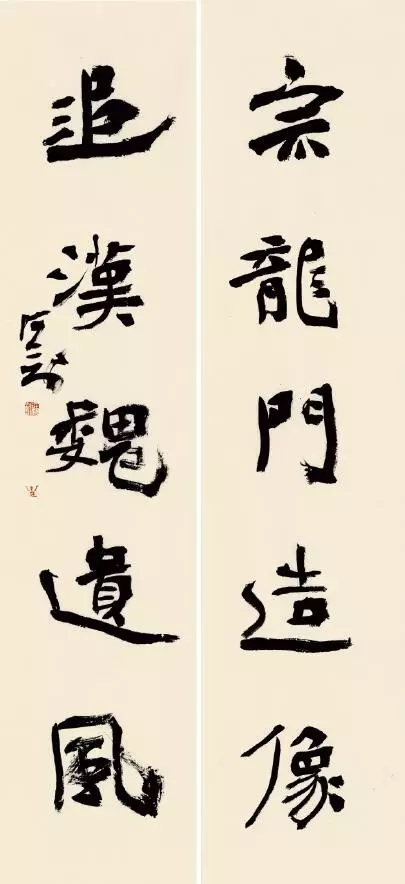 宗龍門造像
追漢魏遺風